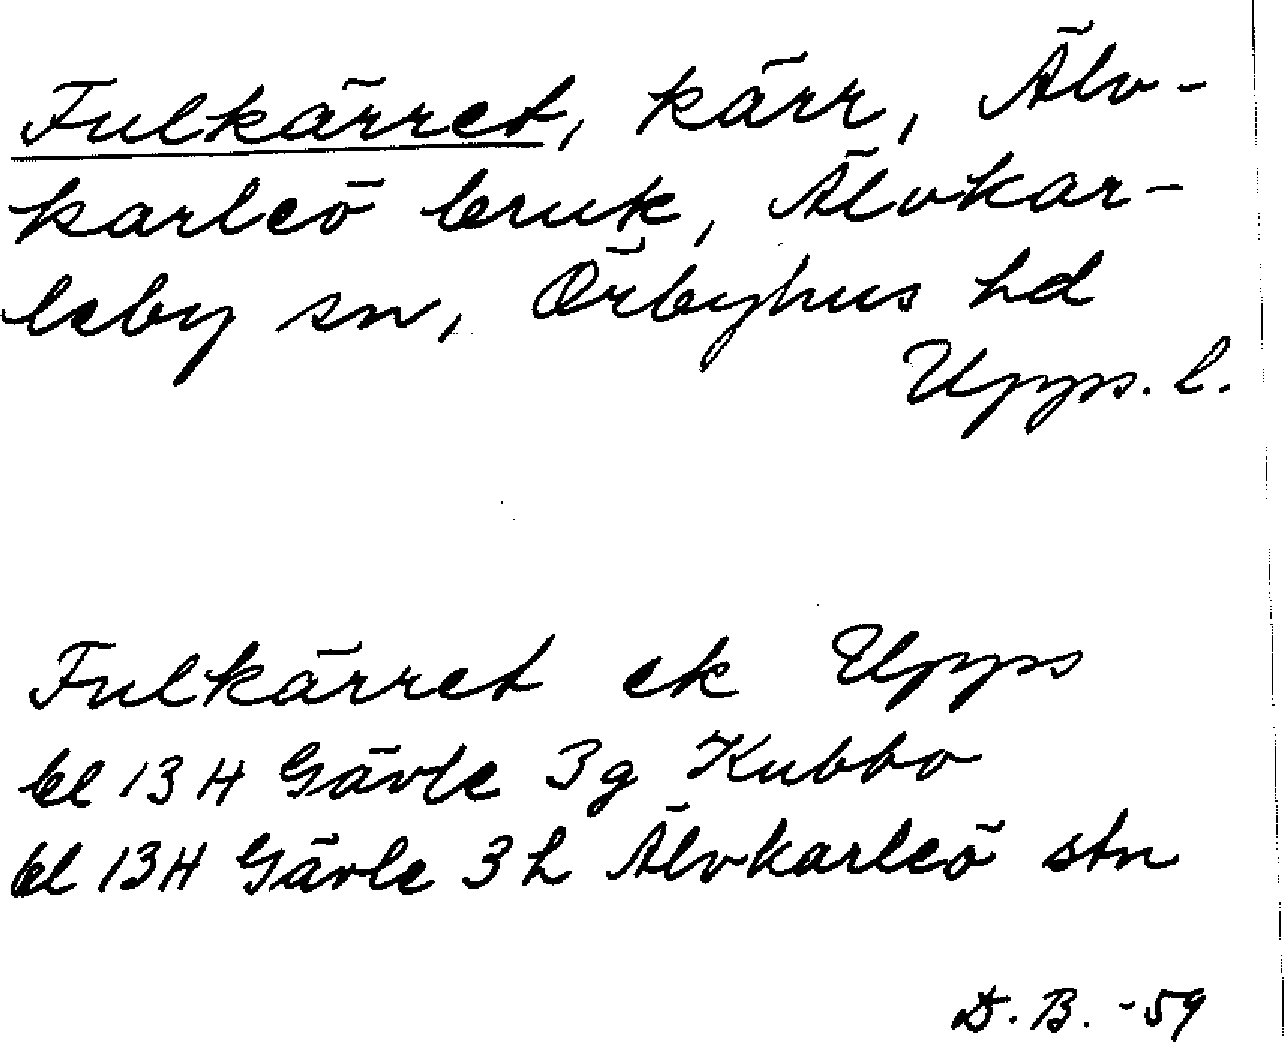 Fulkärret, kärr, Älv-
karleö bruk, Älvkar-
leby sn, Örbyhus hd
Upps. l.
Fulkärret ek Upps
bl 13H Gävle 3g Kubbo
bl 13H Gävle 3h Älvkarleö stn
D. B. -59